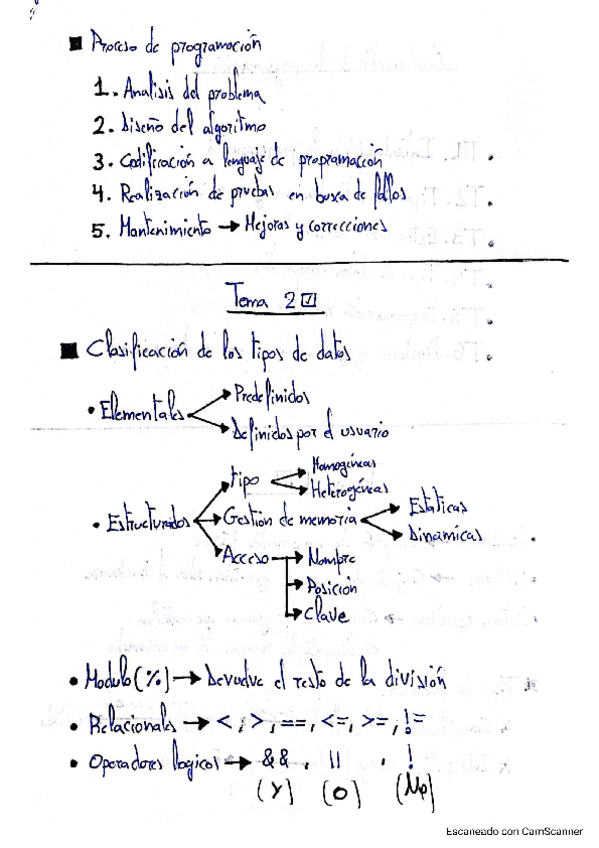 ■ Proceso de programación
1. Analisis del problema
2. Diseño del algoritmo
3. Codificación a lenguaje de programación
4. Realización de pruebas en busca de fallos
5. Mantenimiento → Mejoras y correcciones
Tema 2
■ Clasificación de los tipos de datos
• Elementales
Predefinidos
Definidos por el usuario
• Estructurados
tipo
Homogéneas
Heterogéneas
Gestión de memoria
Estáticas
Dinámicas
Acceso
Nombre
Posición
Clave
• Modulo (%) → Devuelve el resto de la división
• Relacionales → <, >, ==, <=, >=, !=
• Operadores logicos → &&, ||, !
(Y) (O) (No)
Escaneado con CamScanner